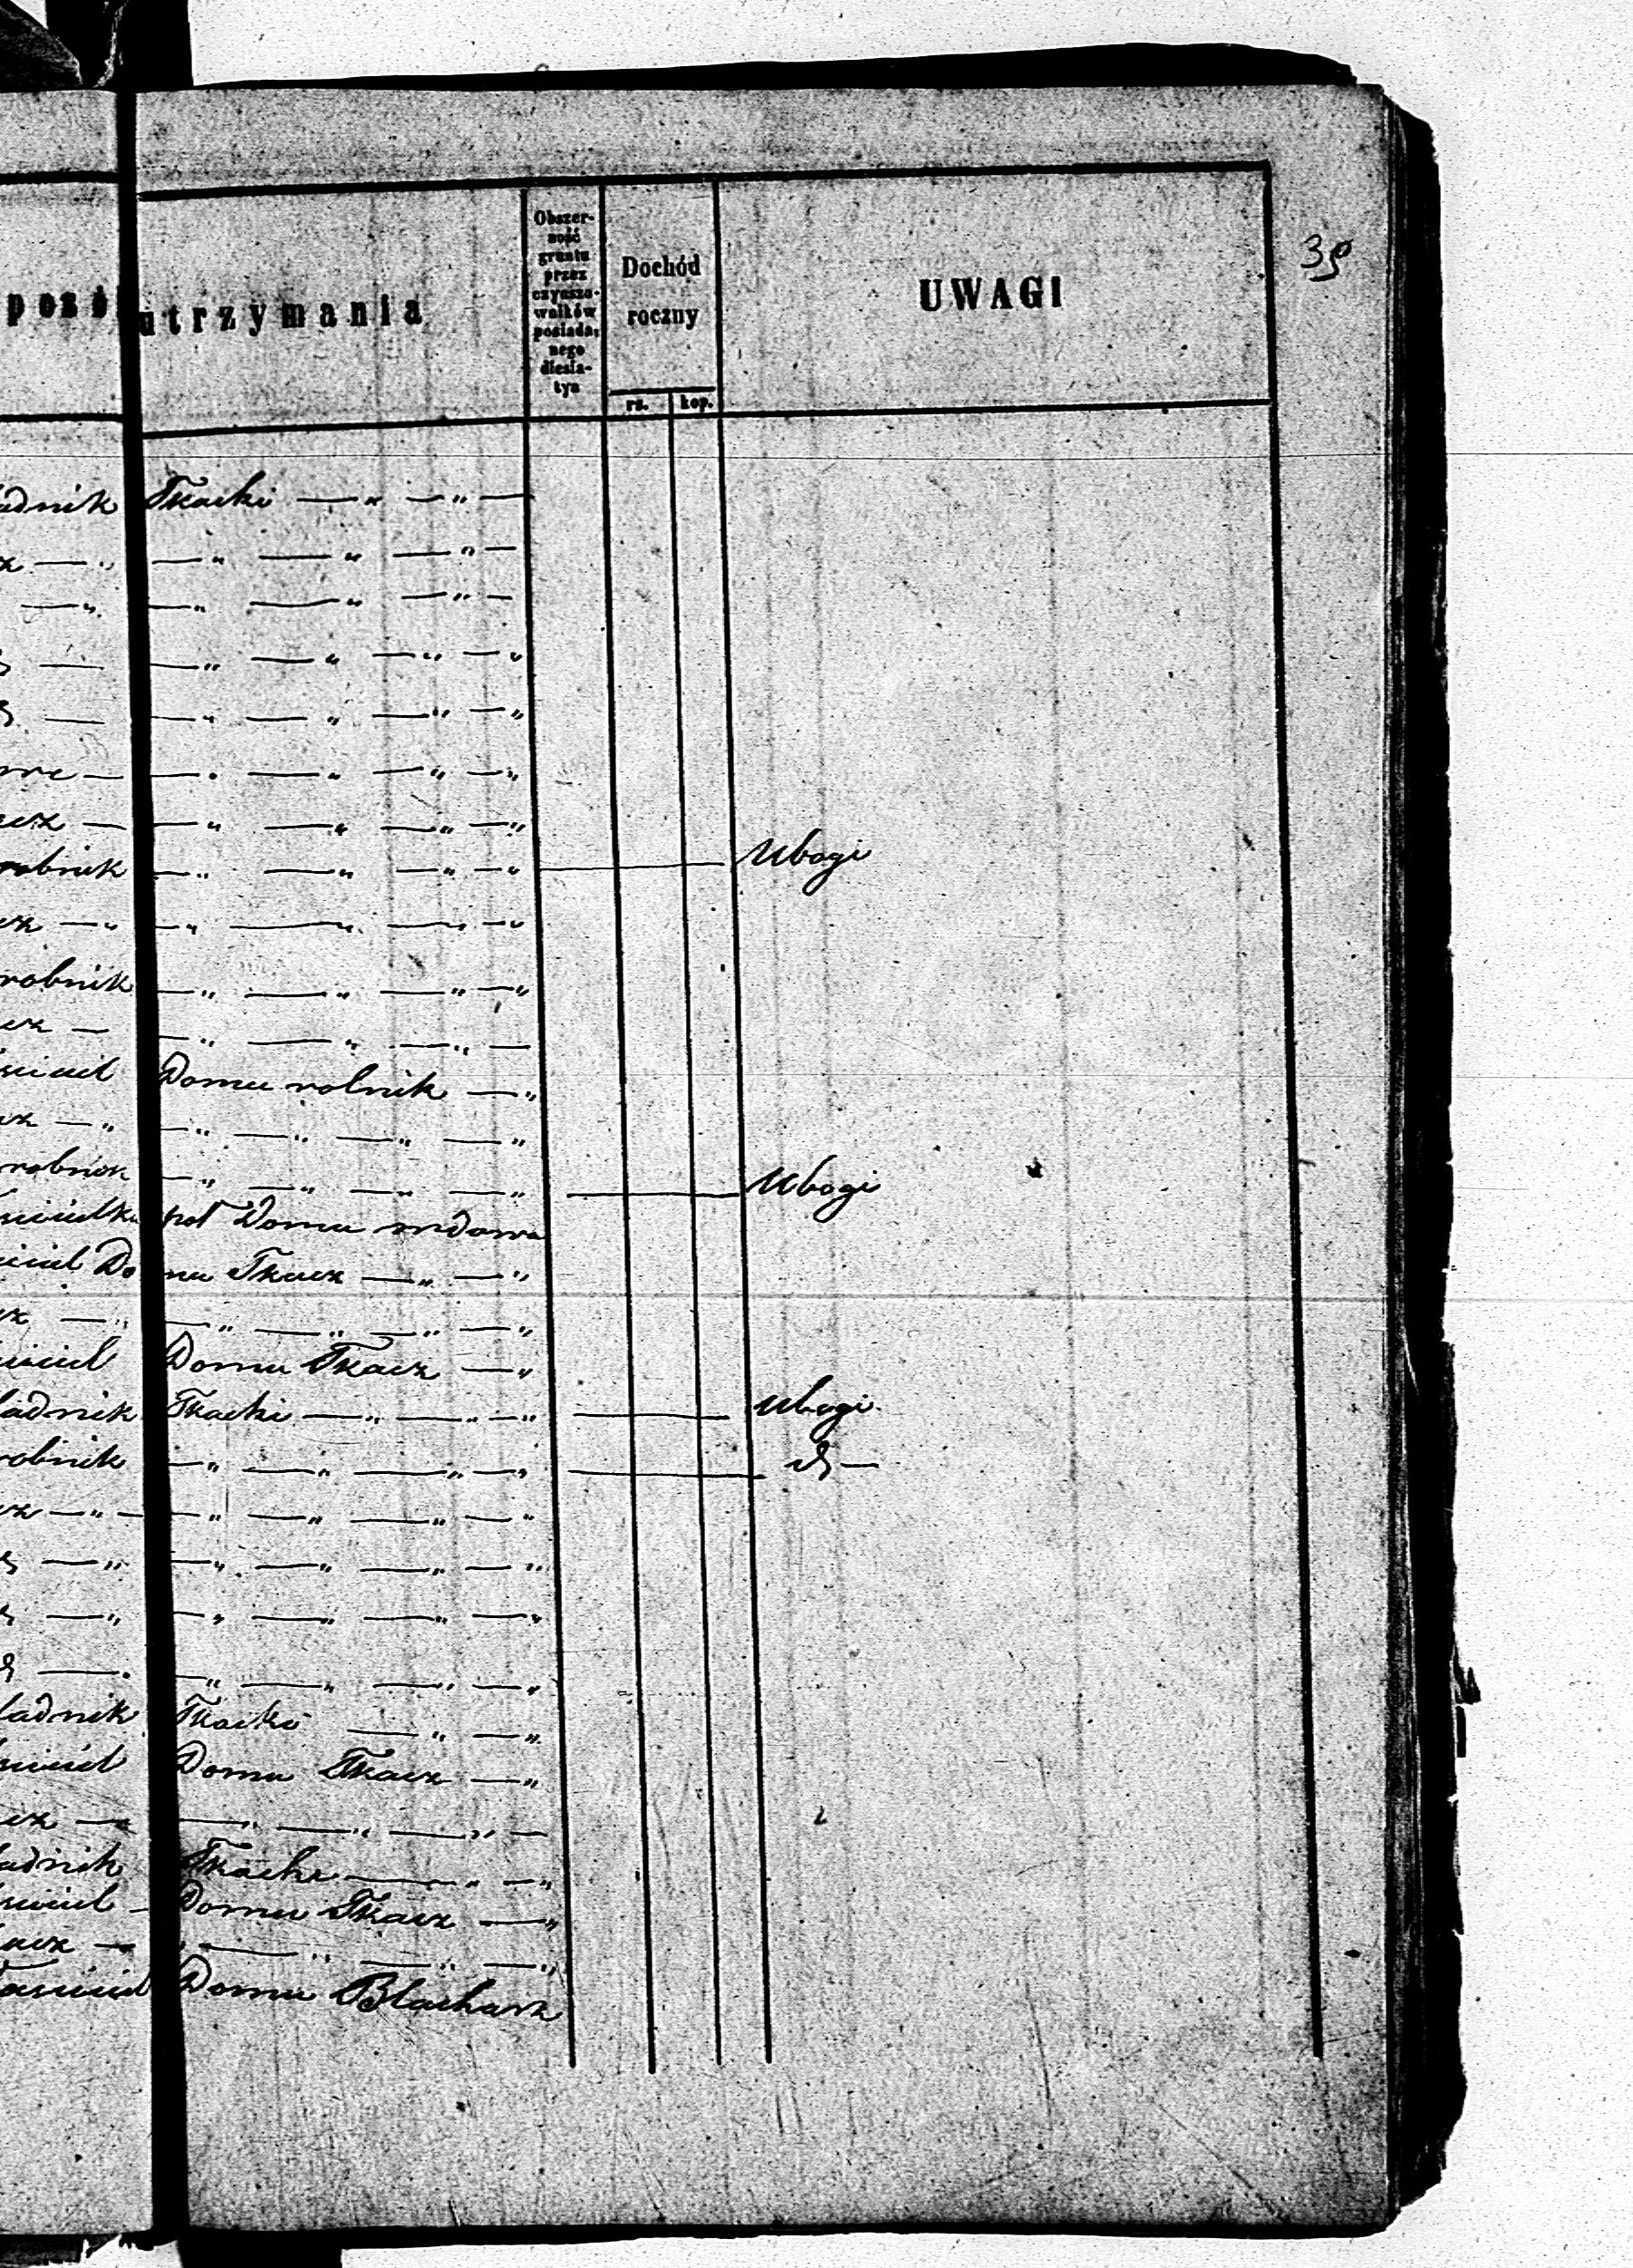 39
posó utrzymania
Obszer-
ność
gruntu
przez
czynszo-
wników
posiada-
nego
diesia-
tyn
Dochód
roczny
rs. kop.
UWAGI
adnik Tkacki — „ — „ —
z — „ — „ — „ — „ —
— „ — „ — „ — „ —
— — „ — „ — „ — „
— — „ — „ — „ — „
— — „ — „ — „ — „
acz — — „ — „ — „ — „
robnik — „ — „ — „ — „ — Ubogi
cz — „ — „ — „ — „ — „
robnik — „ — „ — „ — „
cz — — „ — „ — „ —
ściciel Domu rolnik — „
cz — „ — „ — „ — „ — „
robnik — „ — „ — „ — „ — Ubogi
ścicielka poł Domu wdowa
ściciel Domu Tkacz — „ — „
cz — „ — „ — „ — „ — „
ściciel Domu Tkacz — „
ladnik Tkacki — „ — „ — „ — Ubogi
robnik — „ — „ — „ — „ — d —
cz — „ — — „ — „ — „ — „
d — „ — „ — „ — „ — „
d — „ — „ — „ — „ — „
d — — „ — „ — „ — „
ladnik Tkacki — „ — „
ściciel Domu Tkacz — „
acz — — „ — „ — „ —
ladnik Tkacki — „ — „
ściciel — Domu Tkacz — „
kacz — „ — „ — „ — „
łaściciel Domu Blacharz